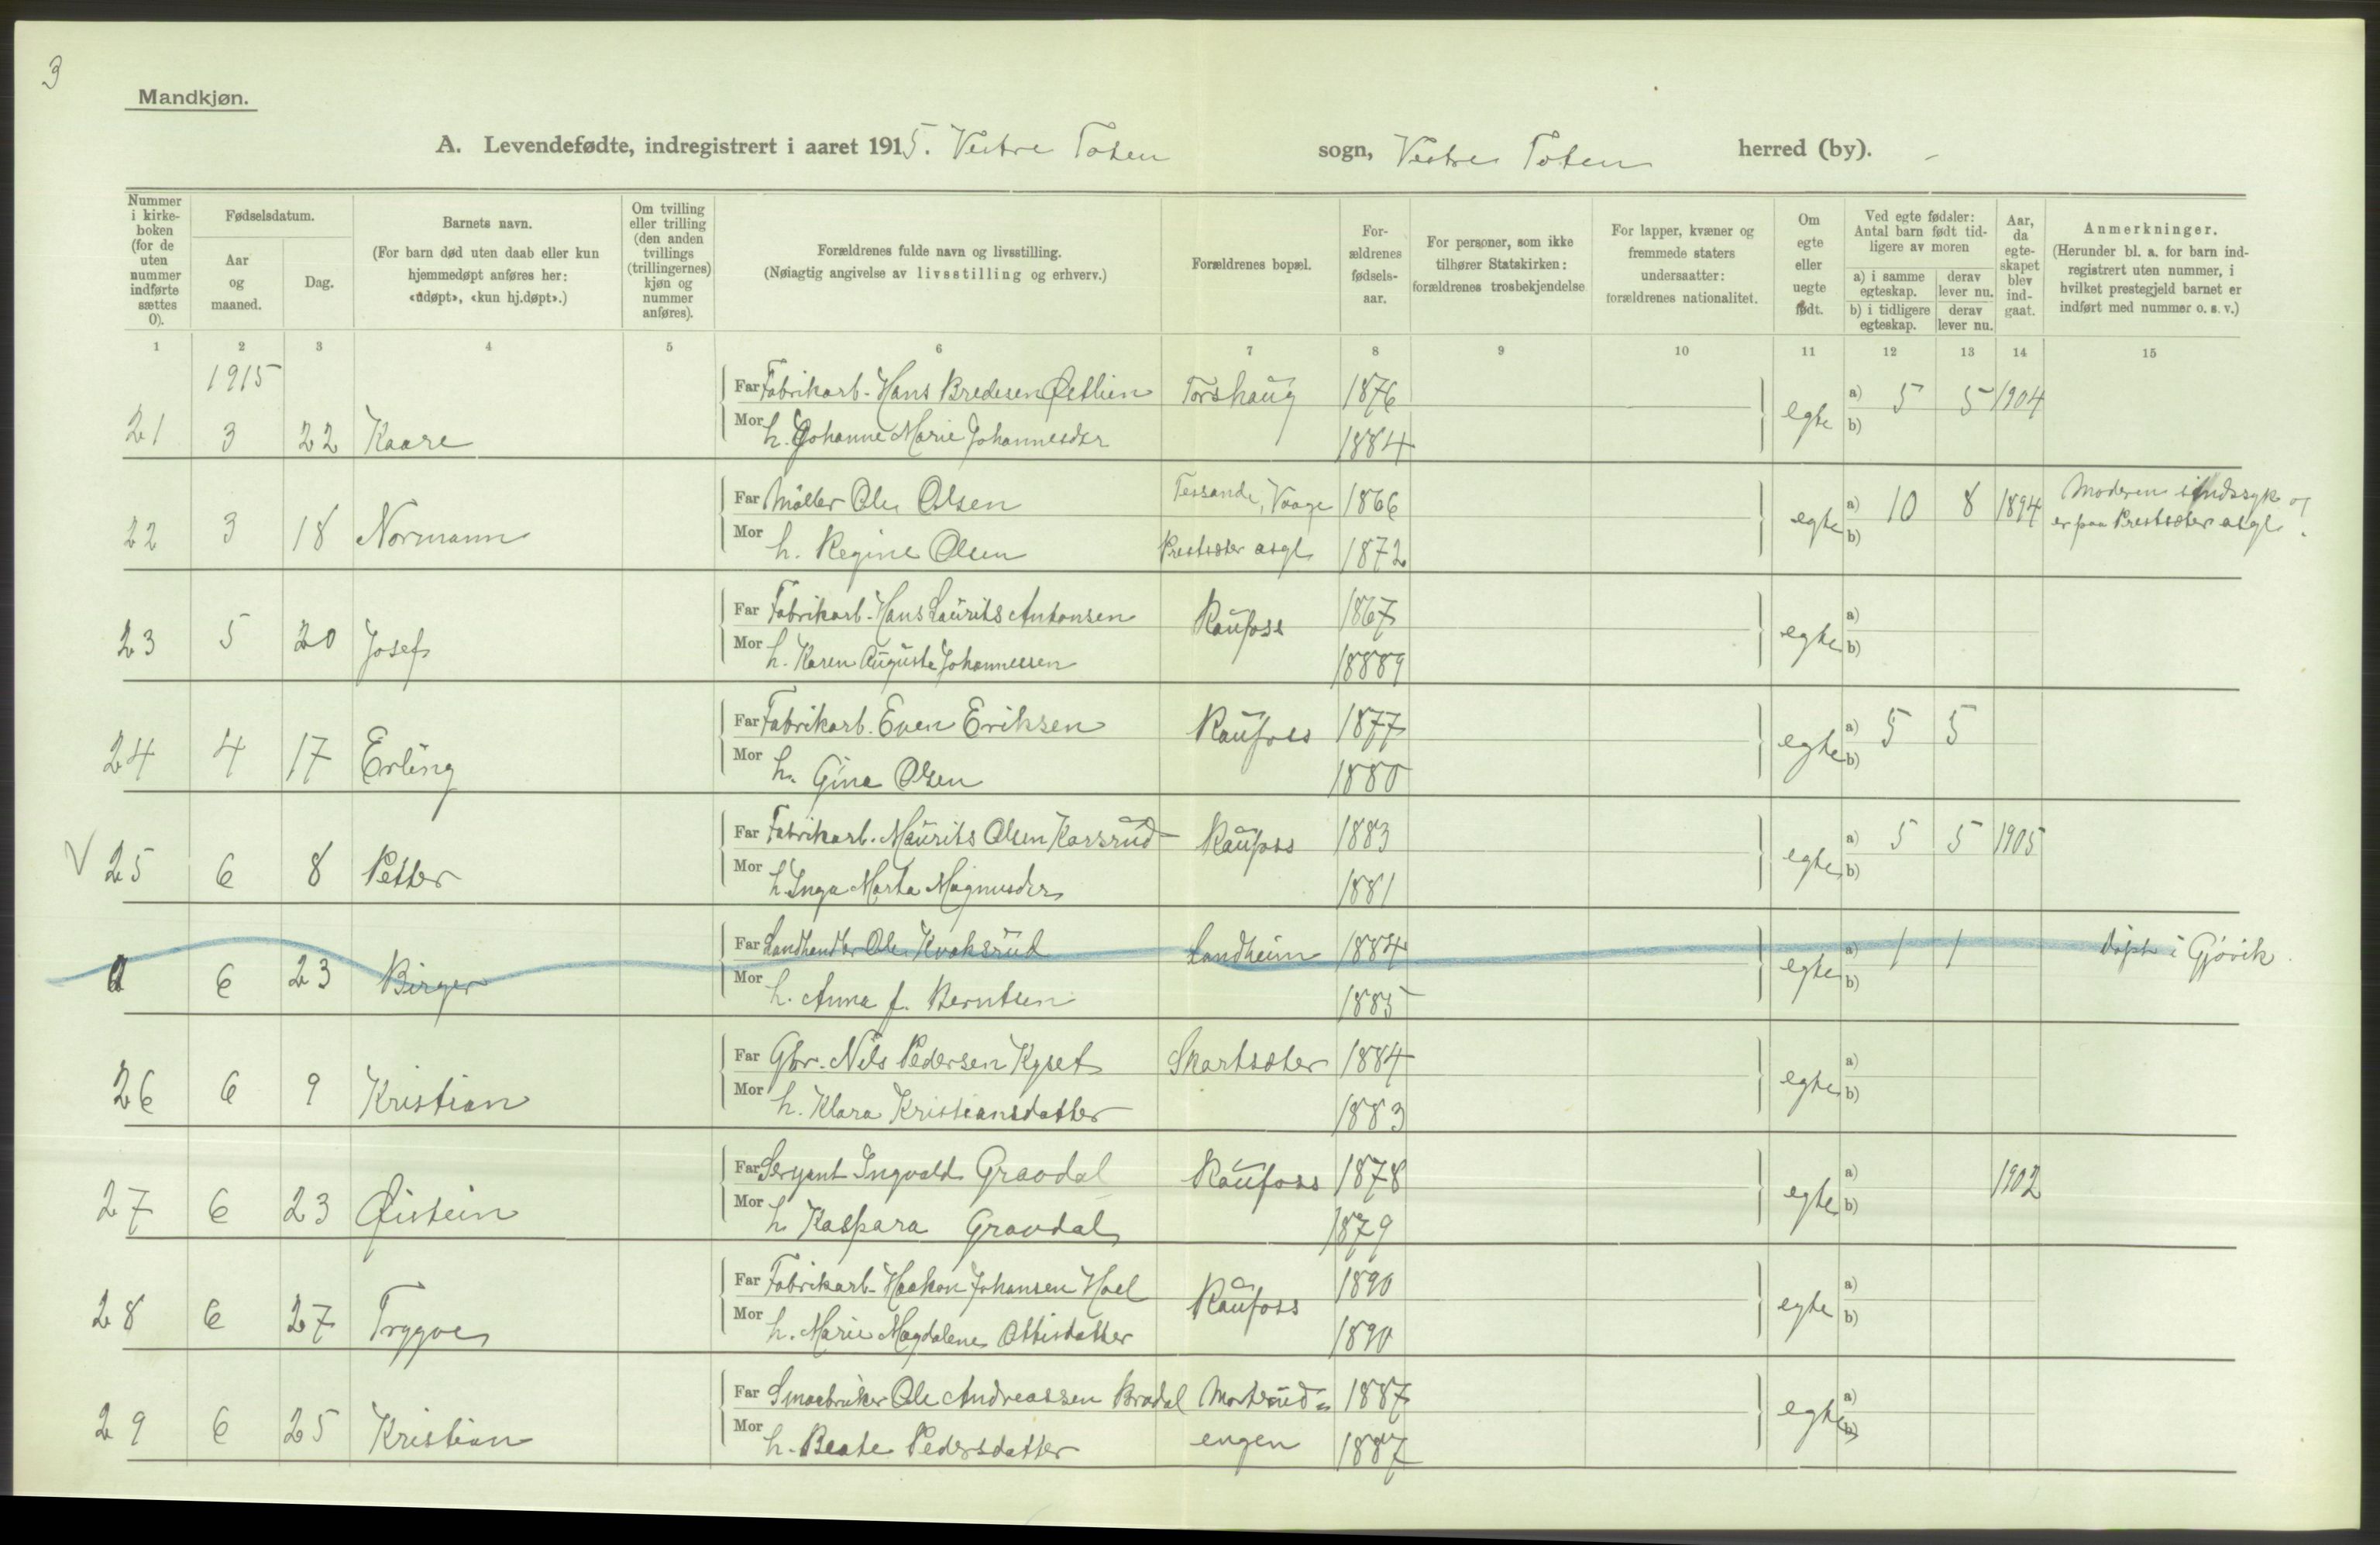 3
Mandkjøn.
A. Levendefødte, indregistrert i aaret 1915. Vestre Toten sogn, Vestre Toten herred (by). -
Nummer i kirke-boken (for de uten nummer indførte sættes 0).
Fødselsdatum.
Aar og maaned.
Dag.
Barnets navn.
(For barn død uten daab eller kun hjemmedøpt anføres her: «udøpt», «kun hj.døpt».)
Om tvilling eller trilling (den anden tvillings (trillingernes) kjøn og nummer anføres).
Forældrenes fulde navn og livsstilling.
(Nøiagtig angivelse av livsstilling og erhverv.)
Forældrenes bopæl.
For-ældrenes fødsels-aar.
For personer, som ikke tilhører Statskirken: forældrenes trosbekjendelse
For lapper, kvæner og fremmede staters undersaatter: forældrenes nationalitet.
Om egte eller uegte født.
Ved egte fødsler: Antal barn født tid-ligere av moren
a) i samme egteskap. derav lever nu.
b) i tidligere egteskap. derav lever nu.
Aar, da egte-skapet blev ind-gaat.
Anmerkninger.
(Herunder bl. a. for barn ind-registrert uten nummer, i hvilket prestegjeld barnet er indført med nummer o. s. v.)
1 2 3 4 5 6 7 8 9 10 11 12 13 14 15
1915
Far Fabrikarb. Hans Bredesen Østlien Torshaug 1876 a) 5 5 1904
21 3 22 Kaare Mor h. Johanne Marie Johannesdtr 1884 egte b)
Far Møller Ole Olsen Tessande, Vaage 1866 a) 10 8 1894 Moderen sindssyk og er paa Prestsæter asyl.
22 3 18 Normann Mor h. Regine Olsen Prestsæter asyl 1872 egte b)
Far Fabrikarb. Hans Laurits Antonsen Raufoss 1867 a)
23 5 20 Josef Mor h. Karen Auguste Johannessen 18889 egte b)
Far Fabrikarb. Even Eriksen Raufoss 1877 a) 5 5
24 4 17 Erling Mor h. Gina Olsen 1880 egte b)
Far Fabrikarb. Maurits Olsen Karsrud Raufoss 1883 a) 5 5 1905
V 25 6 8 Petter Mor h Inga Marta Magnusdtr 1881 egte b)
Far Landhandler Ole Kvaksrud Landheim 1884 a) 1 1 døpt i Gjøvik.
0 6 23 Birger Mor h. Anna f. Berntsen 1885 egte b)
Far Gbr. Nils Pedersen Kyset Skartsæter 1884 a)
26 6 9 Kristian Mor h. Klara Kristiansdatter 1883 egte b)
Far Sersjant Ingvald Gravdal Raufoss 1878 a) 1902
27 6 23 Øistein Mor h Kaspara Gravdal 1879 egte b)
Far Fabrikarb. Haakon Johansen Hoel Raufoss 1890 a)
28 6 27 Trygve Mor h. Marie Magdalene Ottisdatter 1890 egte b)
Far Smaabruker Ole Andreassen Bradal Morterud= 1887 a)
29 6 25 Kristian Mor h. Beate Pedersdatter engen 1887 egte b)